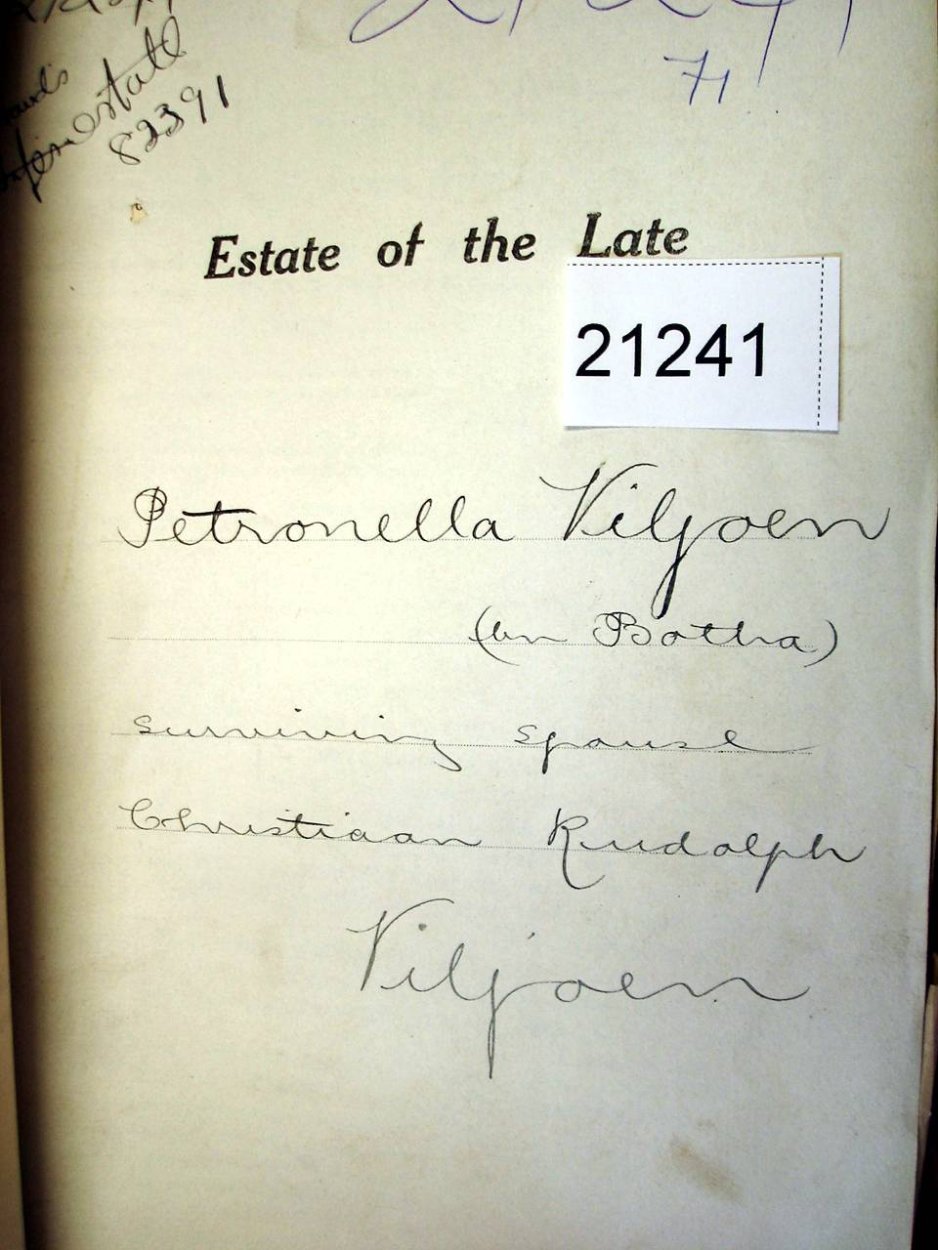 estate
82391
71
Estate of the Late
21241
Petronella Viljoen
(bn Botha)
surviving spouse
Christiaan Rudolph
Viljoen